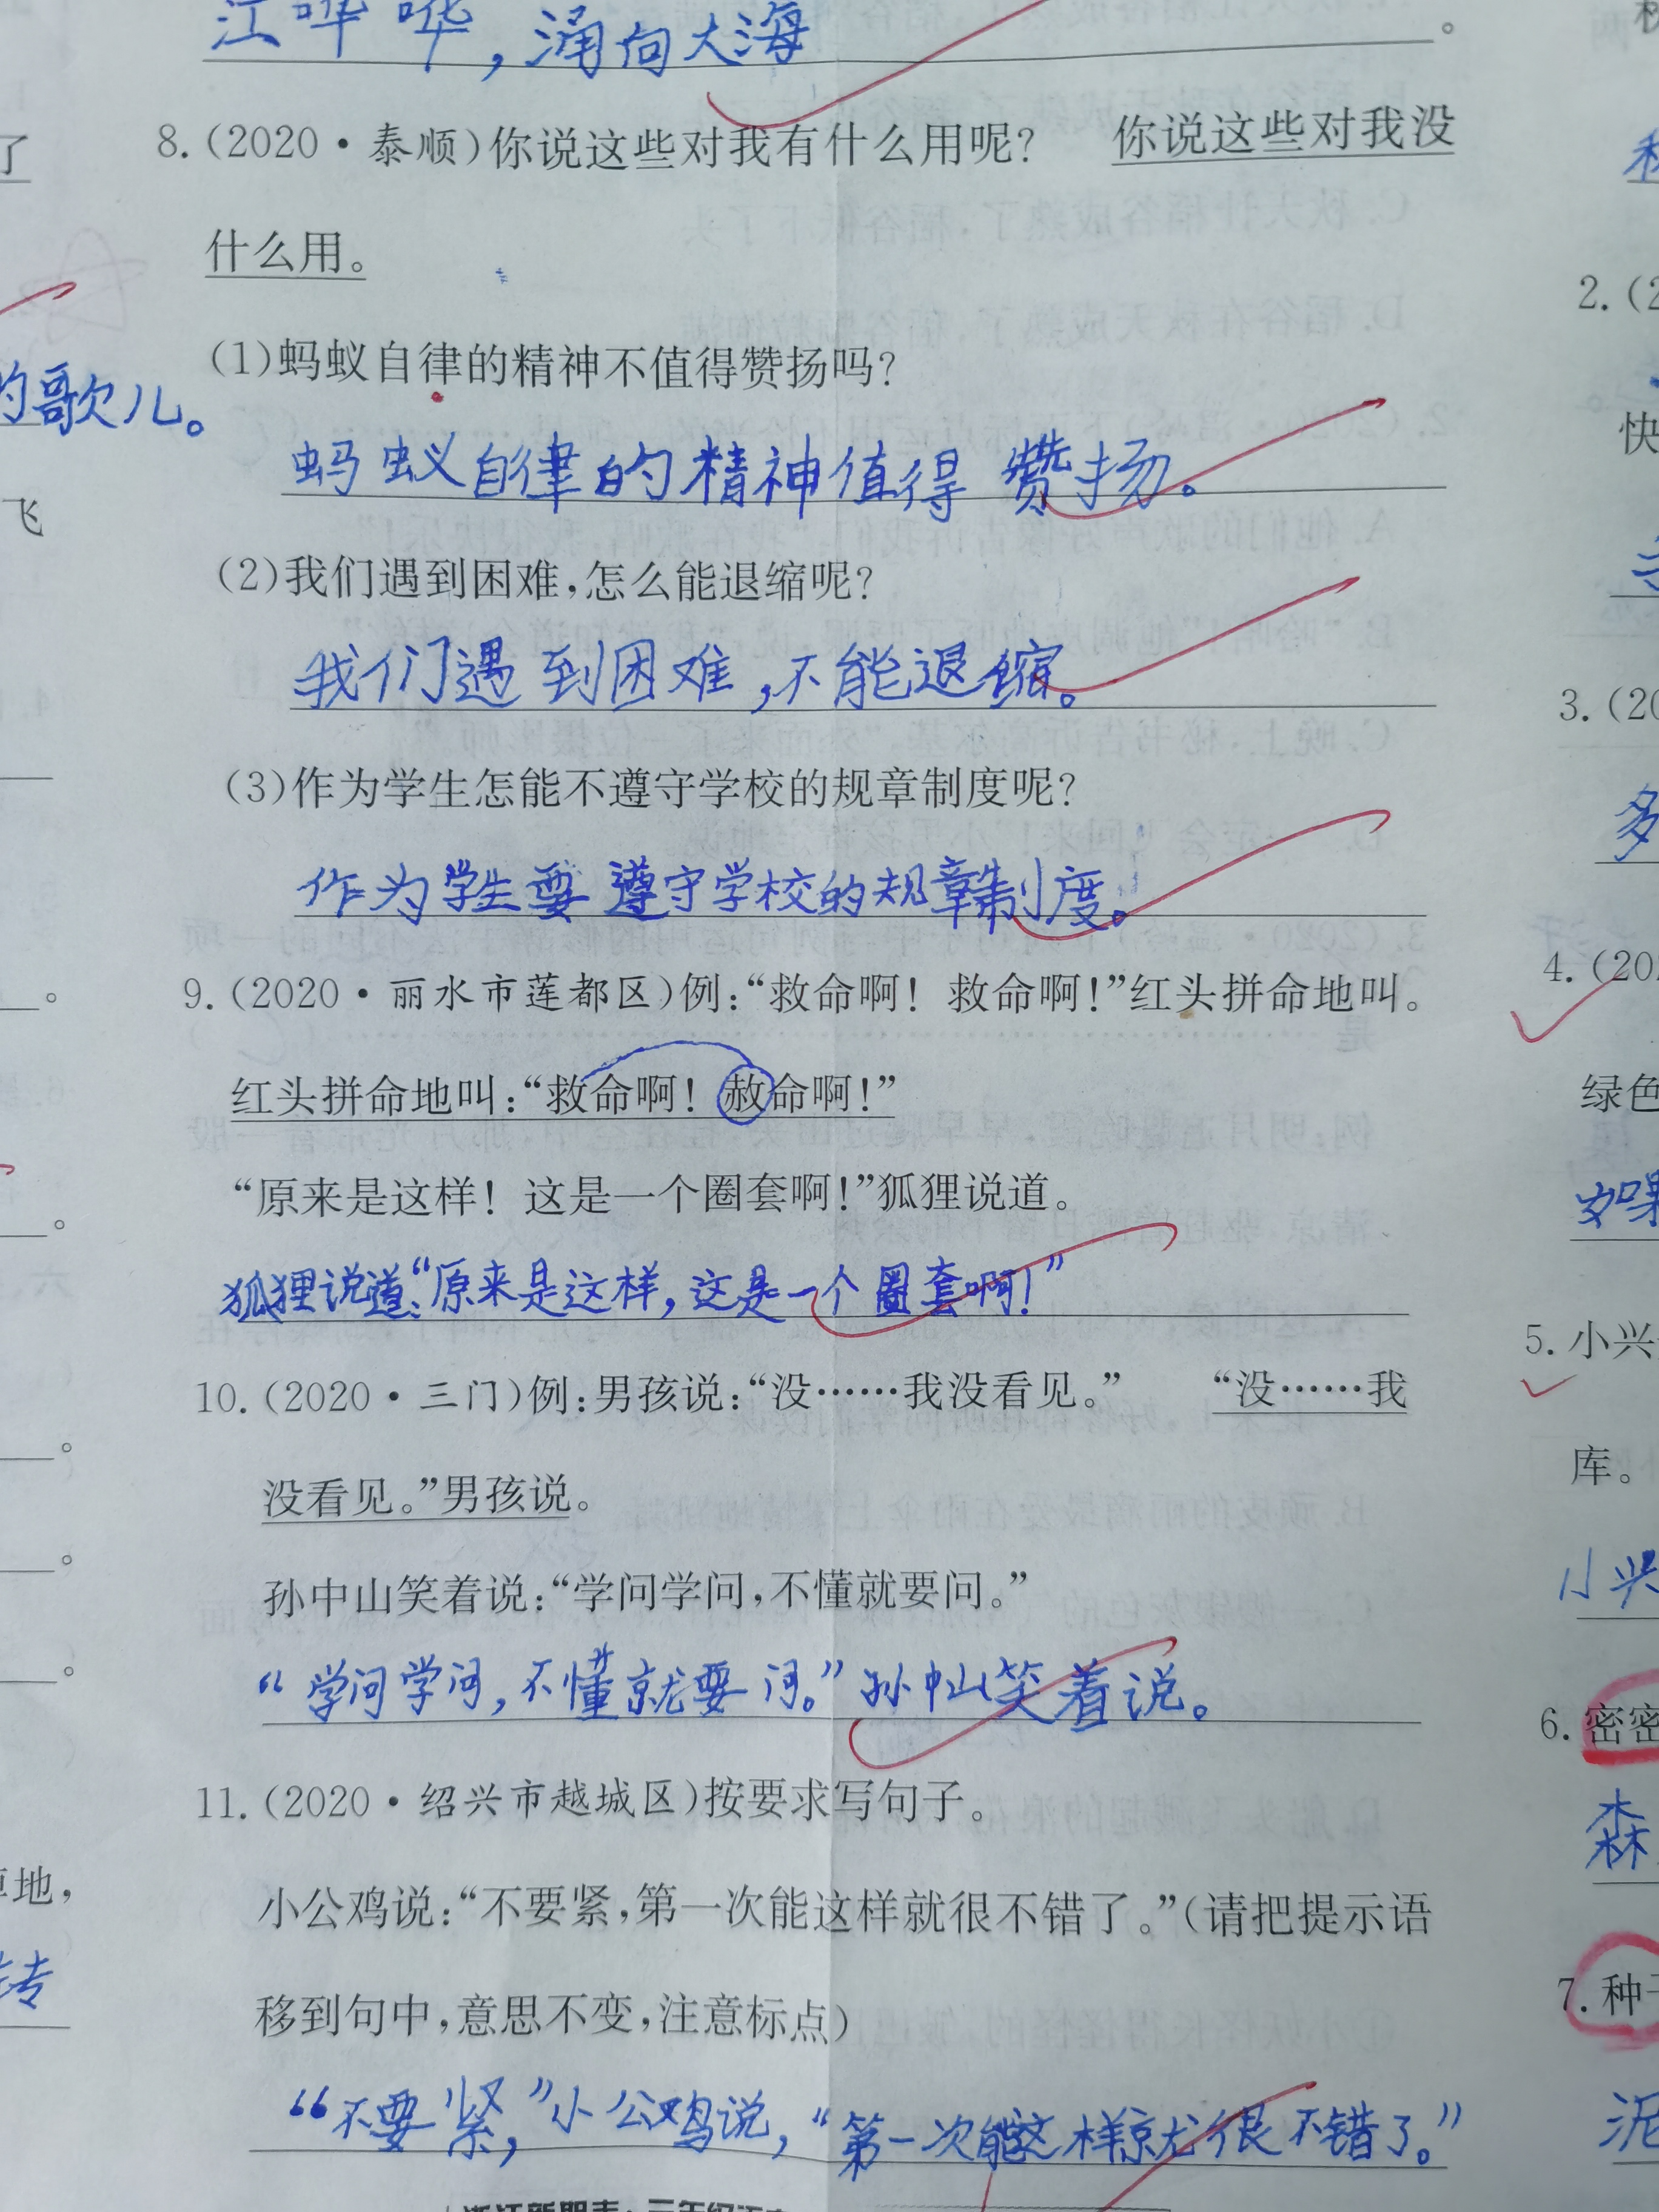 江哗哗，涌向大海。
8.(2020·泰顺)你说这些对我有什么用呢？ 你说这些对我没
什么用。
(1)蚂蚁自律的精神不值得赞扬吗？
的歌儿。
蚂蚁自律的精神值得赞扬。
飞
(2)我们遇到困难，怎么能退缩呢？
我们遇到困难，不能退缩。
(3)作为学生怎能不遵守学校的规章制度呢？
作为学生要遵守学校的规章制度。
9.(2020·丽水市莲都区)例：“救命啊！救命啊！”红头拼命地叫。
红头拼命地叫：“救命啊！赦命啊！”
“原来是这样！这是一个圈套啊！”狐狸说道。
狐狸说道：“原来是这样，这是一个圈套啊！”
10.(2020·三门)例：男孩说：“没……我没看见。” “没……我
没看见。”男孩说。
孙中山笑着说：“学问学问，不懂就要问。”
“学问学问，不懂就要问。”孙中山笑着说。
11.(2020·绍兴市越城区)按要求写句子。
小公鸡说：“不要紧，第一次能这样就很不错了。”(请把提示语
地，
移到句中，意思不变，注意标点)
转
“不要紧，”小公鸡说，“第一次能这样就很不错了。”
了
2.(2
快
3.(20
多
4.(20
绿色
如果
5.小兴
库。
小兴
6.密密
森
7.种子
泥